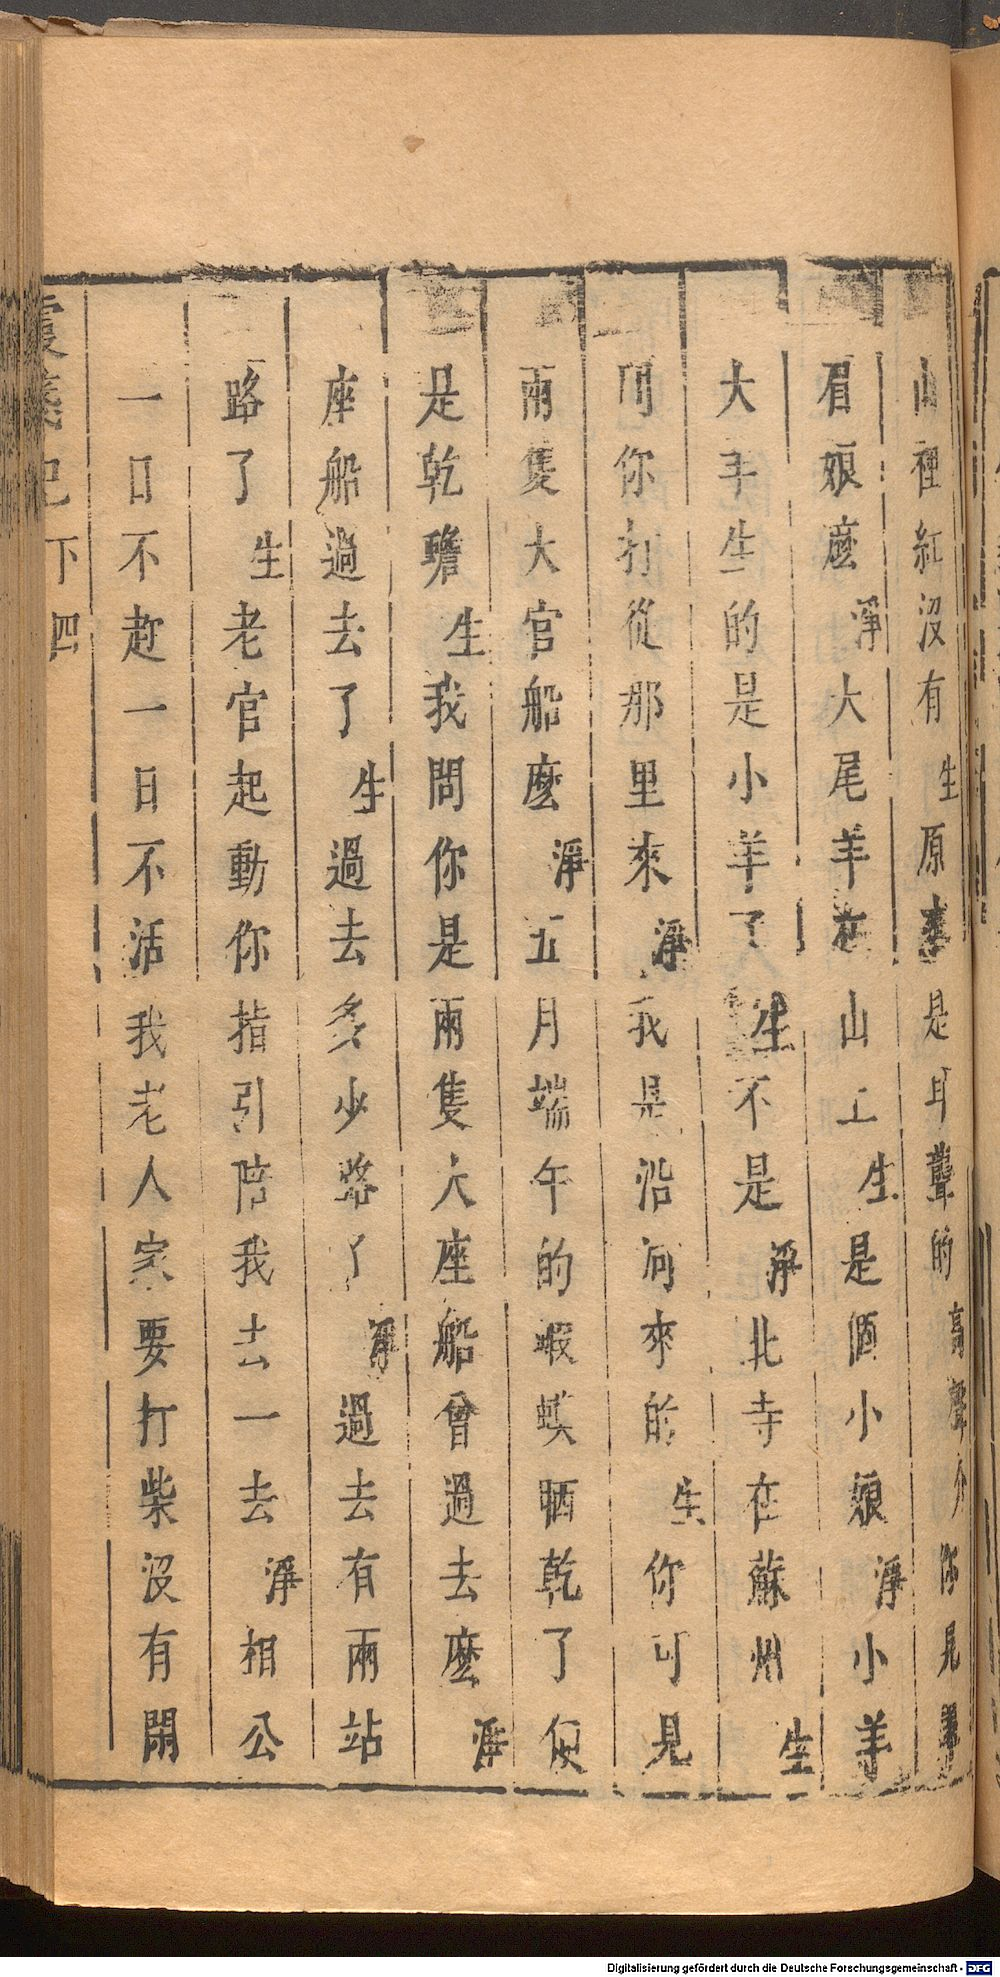 山裡紅沒有生原來是耳聾的高聲介你見
眉娘麼淨大尾羊在山上生是個小娘淨小羊
大羊生的是小羊了生不是淨北寺在蘇州生
門你打從那里來淨我是沿河來的生你可見
兩隻大官船麼淨五月端午的蝦蟆晒乾了便
是乾蟾生我問你是兩隻大座船曾過去麼淨
座船過去了生過去多少路了淨過去有兩站
路了生老官起動你指引陪我去一去淨相公
一日不赴一日不活我老人家要打柴沒有閑
霞箋記 下 四
Digitalisierung gefördert durch die Deutsche Forschungsgemeinschaft - DFG